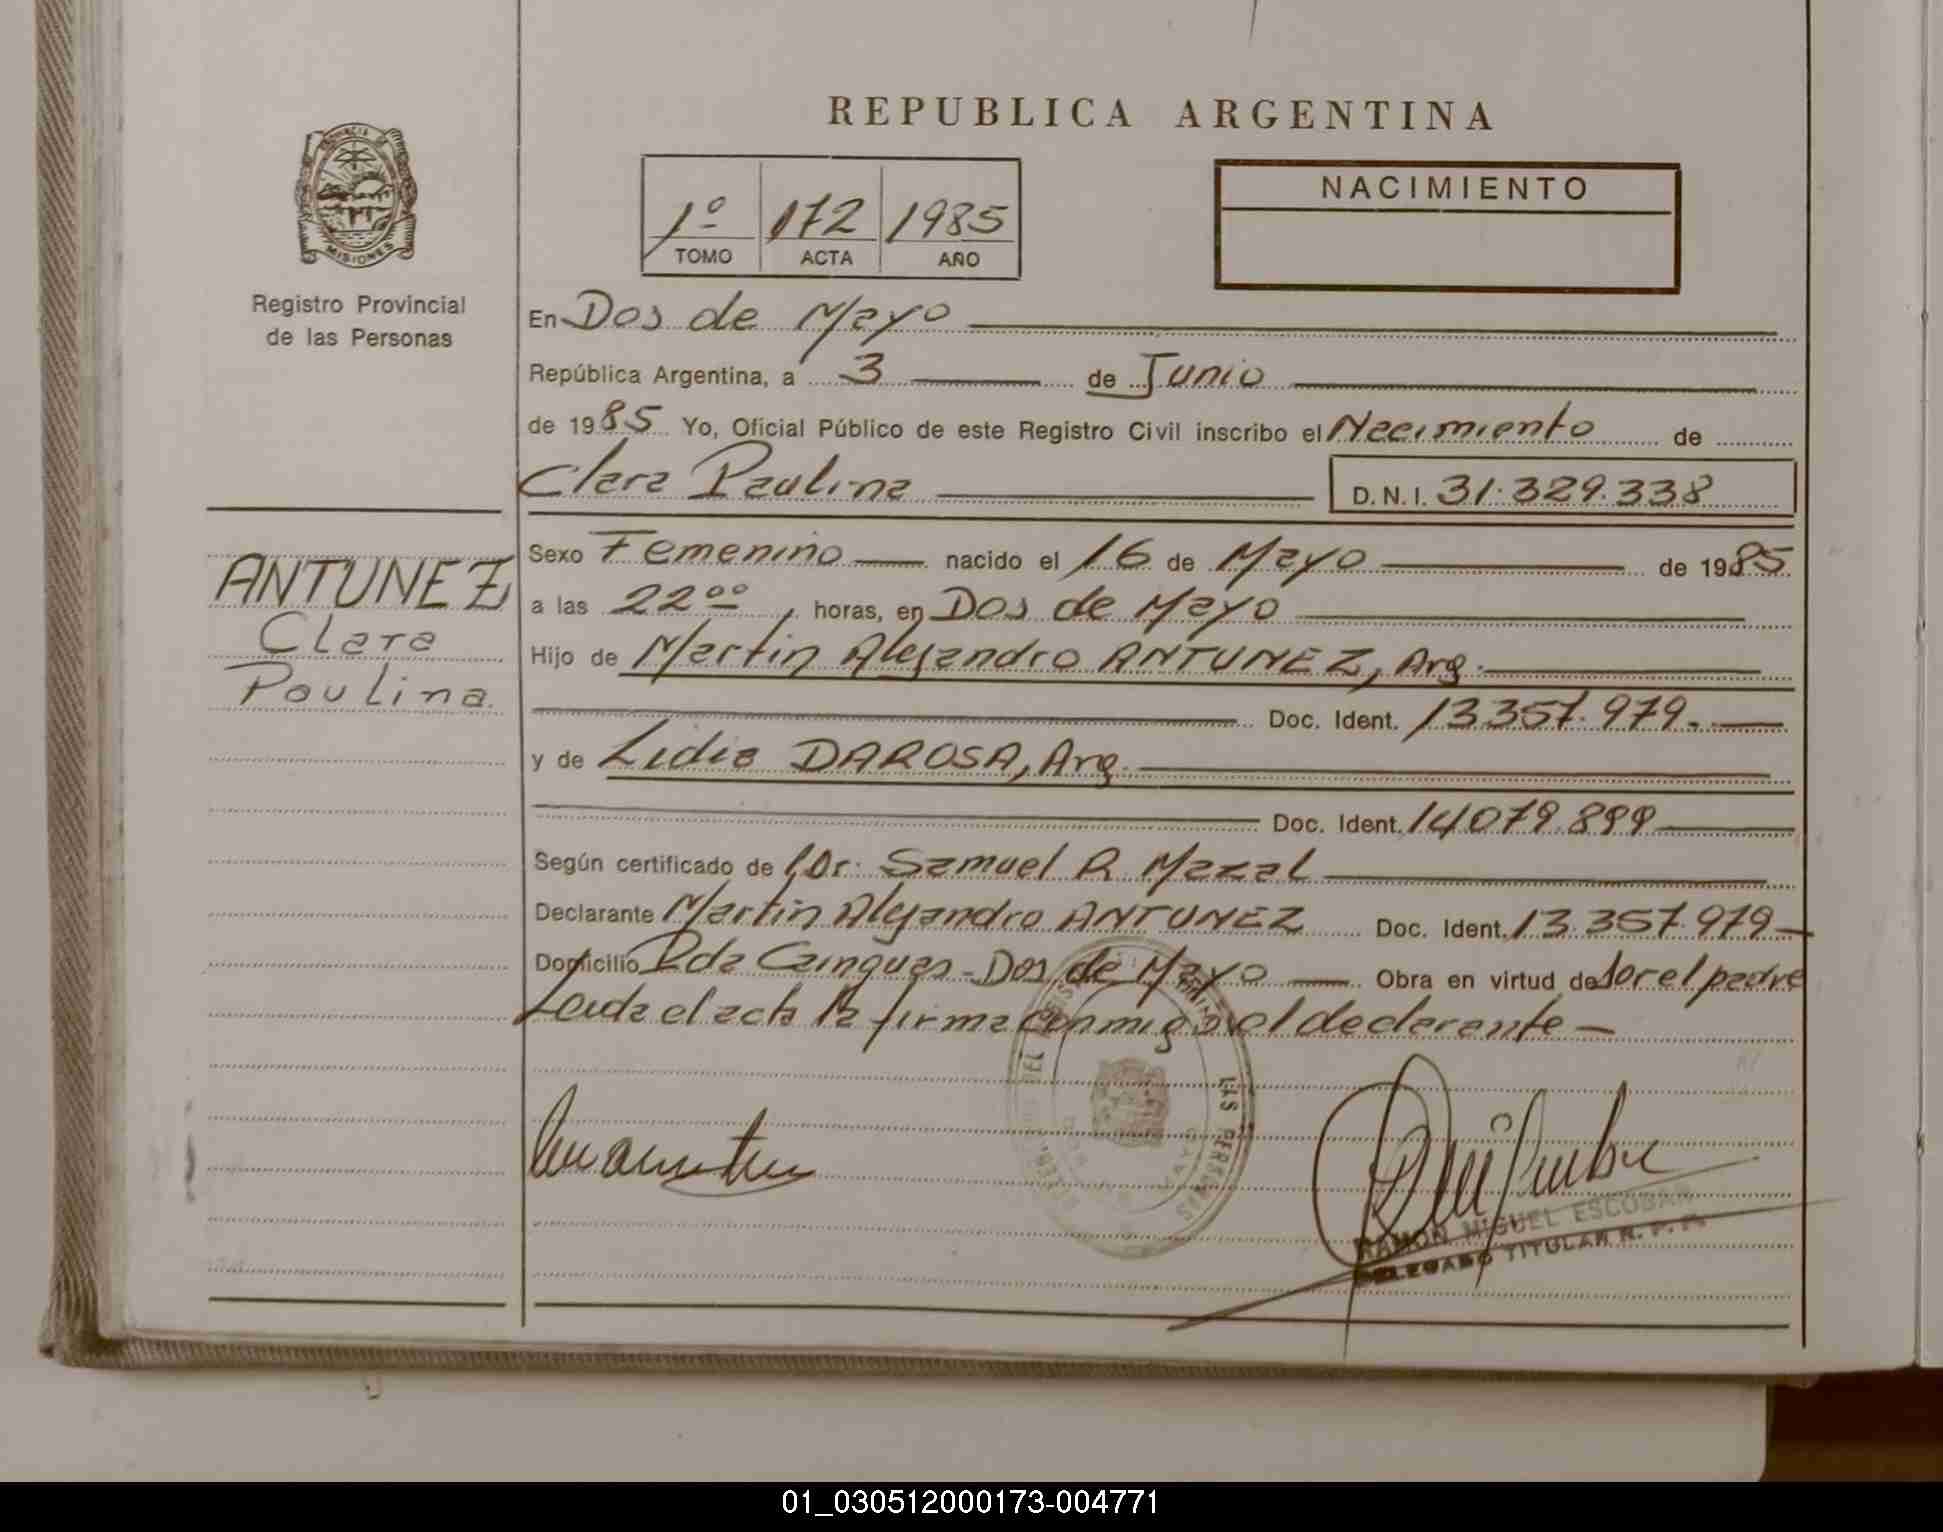 REPUBLICA ARGENTINA
PROVINCIA DE
MISIONES
Registro Provincial
de las Personas
1º 172 1985
TOMO ACTA AÑO
NACIMIENTO
En Dos de Mayo
República Argentina, a 3 de Junio
de 1985 Yo, Oficial Público de este Registro Civil inscribo el Nacimiento de
Clara Paulina D.N.I. 31.329.338
ANTUNEZ
Clara
Paulina
Sexo Femenino nacido el 16 de Mayo de 1985
a las 22⁰⁰, horas, en Dos de Mayo
Hijo de Martin Alejandro ANTUNEZ, Arg.
Doc. Ident. 13.357.979.
y de Lidia DAROSA, Arg.
Doc. Ident. 14.079.899
Según certificado de Dr. Samuel R Mazal
Declarante Martin Alejandro ANTUNEZ Doc. Ident. 13.357.979
Domicilio Pda Dos de Mayo Obra en virtud de Ser el padre
Leida el acta la firma conmigo el declarante
LAS PERSONAS
RAMON MIGUEL ESCOBAR
DELEGADO TITULAR R. P. P.
01_030512000173-004771